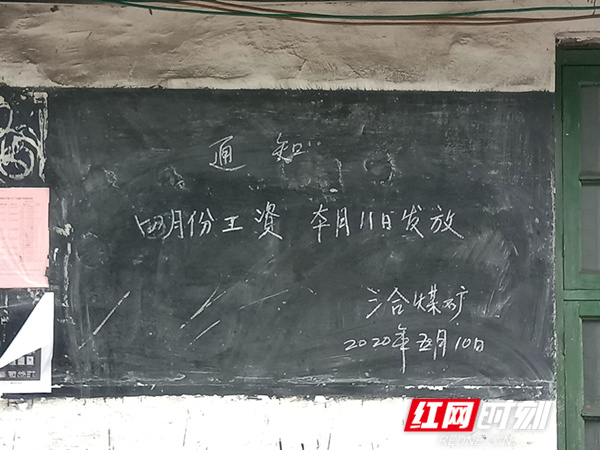 通知
四月份工资 本月11日发放
三合煤矿
2020年五月10日
红网时刻
REDNET.CN